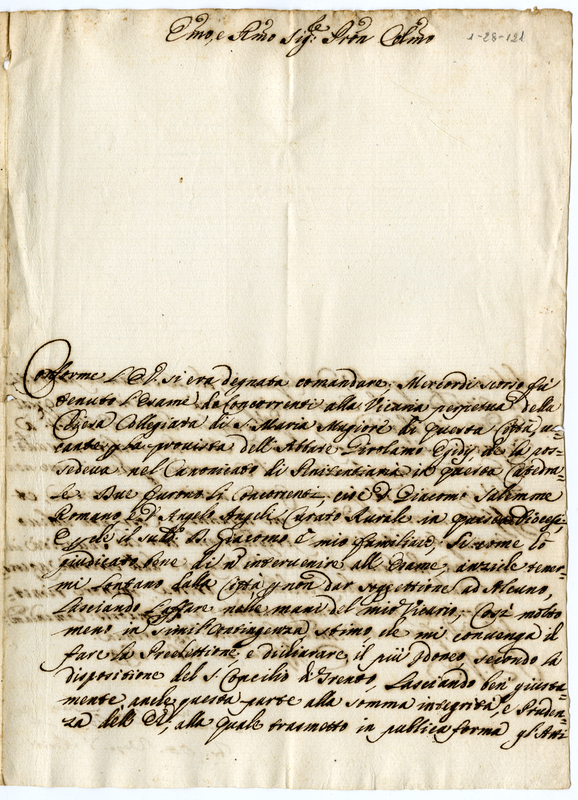 Emo, e Rmo Sig.re Prõn Colmo
1-28-121
Conforme l'E.V. si era degnata comandare, Mercordi scorso fù
tenuto l'Esame de Concorrenti alla Vicaria perpetua della
Chiesa Collegiata di S. Maria Magiore di questa Città, va=
cante p la provista dell'Abbate Girolamo Egidy, che la pos=
sedeva nel Canonicato di in questa Catedra=
le. Due furono li Concorrenti, cioè D. Giacomo
Romano, e D. Angelo Angeli Curato Rurale in questa Diocesi.
E p che il sud.o D. Giacomo è mio familiare, si come hò
giudicato bene di nõ intervenire all'Esame, anzi che tener=
mi lontano dalla Città p non dar soggettione ad Alcuno,
lasciando l'affare nelle mani del mio Vicario; Così molto
meno in simil Contingenza stimo, che mi convenga il
fare la Preelettione, e dichiarare il più Idoneo, secondo la
disposittione del S. Concilio di Trento, Lasciando ben giusta=
mente anche questa parte alla somma integrità, e Pruden=
za dell'E.V., alla quale trasmetto in publica forma gl'Atti